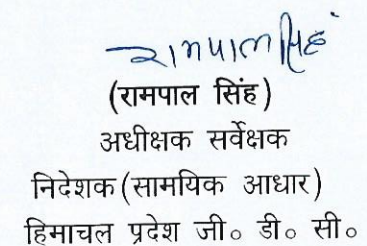 रामपाल सिंह
(रामपाल सिंह)
अधीक्षक सर्वेक्षक
निदेशक (सामयिक आधार)
हिमाचल प्रदेश जी० डी० सी०